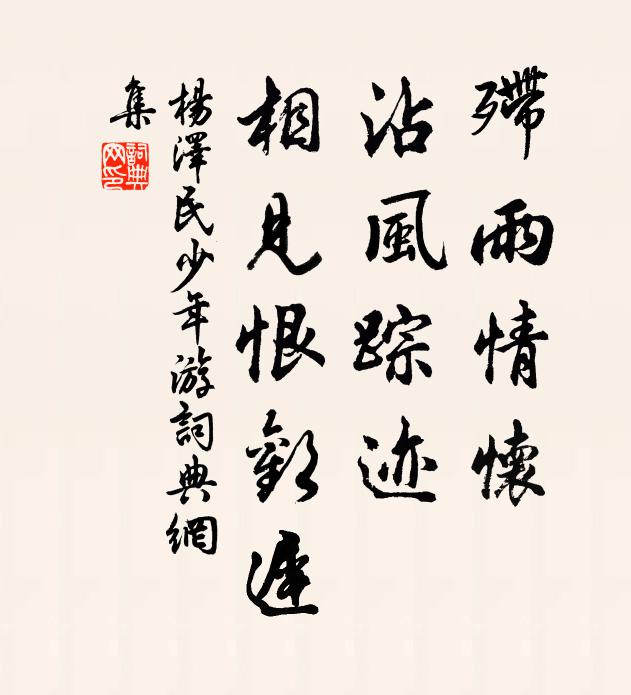 殢雨情懷
沾風踪迹
相見恨歡遲
楊澤民少年游詞典網
集
詞典
网印